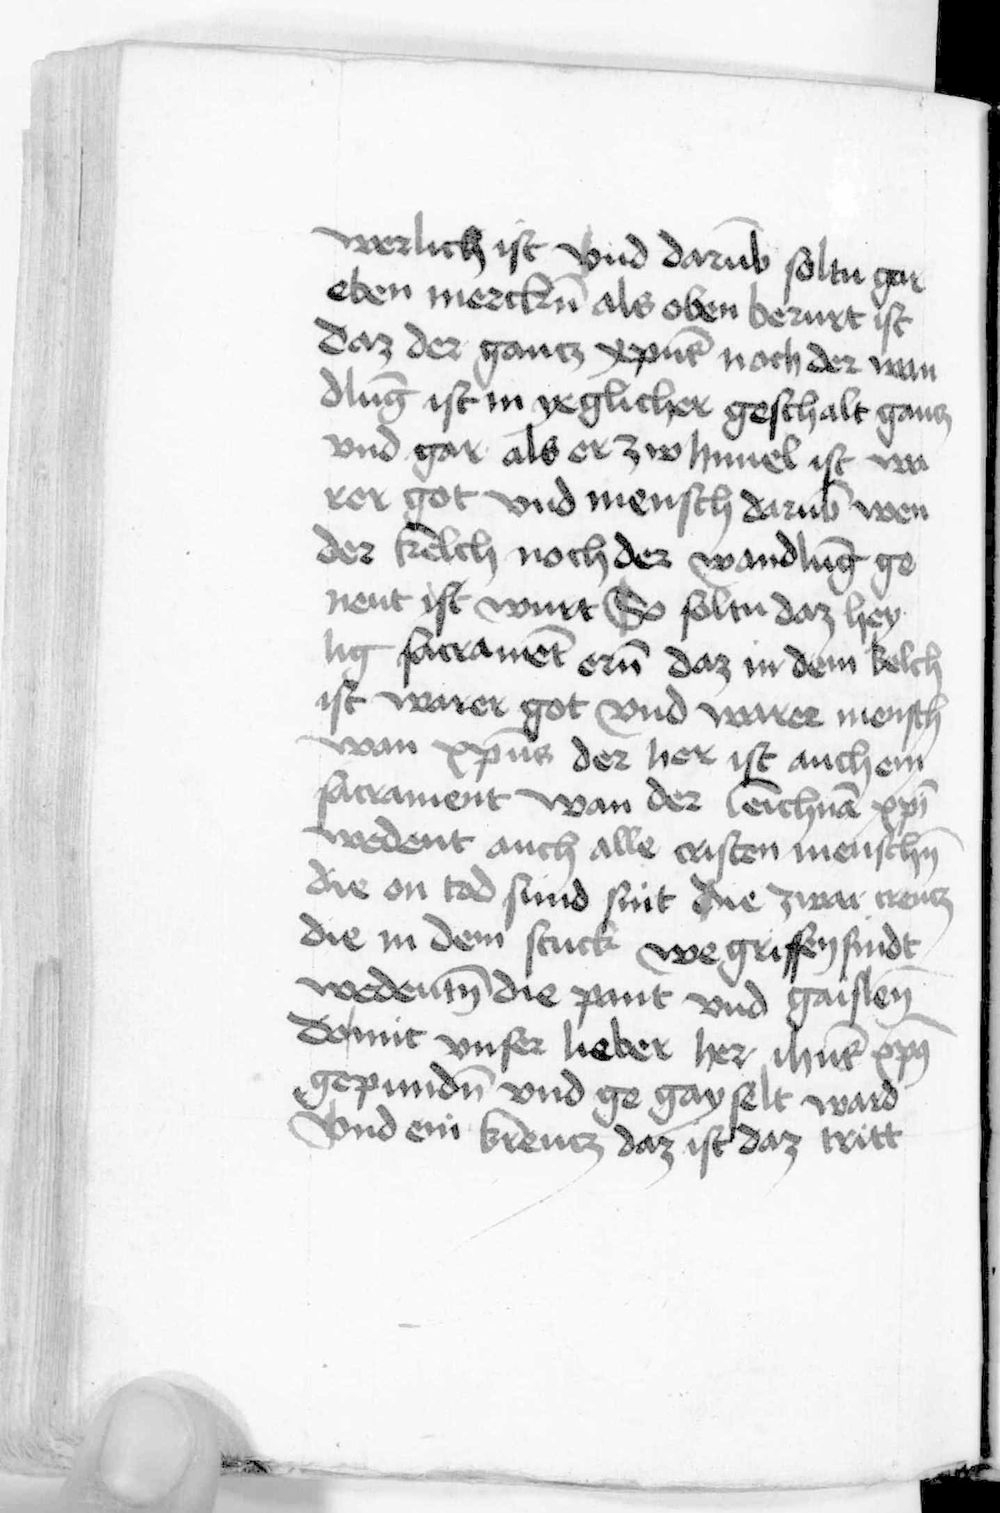 werlich ist Vnd darūb soltu gar
eben merckn̄ als oben berurt ist
Daz der gancz xpūs noch der wan
dlūg ist in yeglicher geschalt gancz
vnd gar als er zw himel ist wa
rer got vnd mensch darūb wen
der kelch noch der wandlūg ge
nent ist wurt So soltu daz hey
lig sacramēt ern̄ daz in dem kelch
ist warer got vnd warer mensch
wan xpūs der her ist auch ein
sacrament wan der leichnā xpī
wedent auch alle cristen menschn̄
die on tod sund sint die zwai creucz
die in dem stuck wegriffen sindt
wedeutn̄ die pant vnd gaislen̄
Domit vnser lieber her ihūs xp̄s
gepundn̄ vnd ge gayselt ward
Vnd ein kreucz daz ist daz tritt